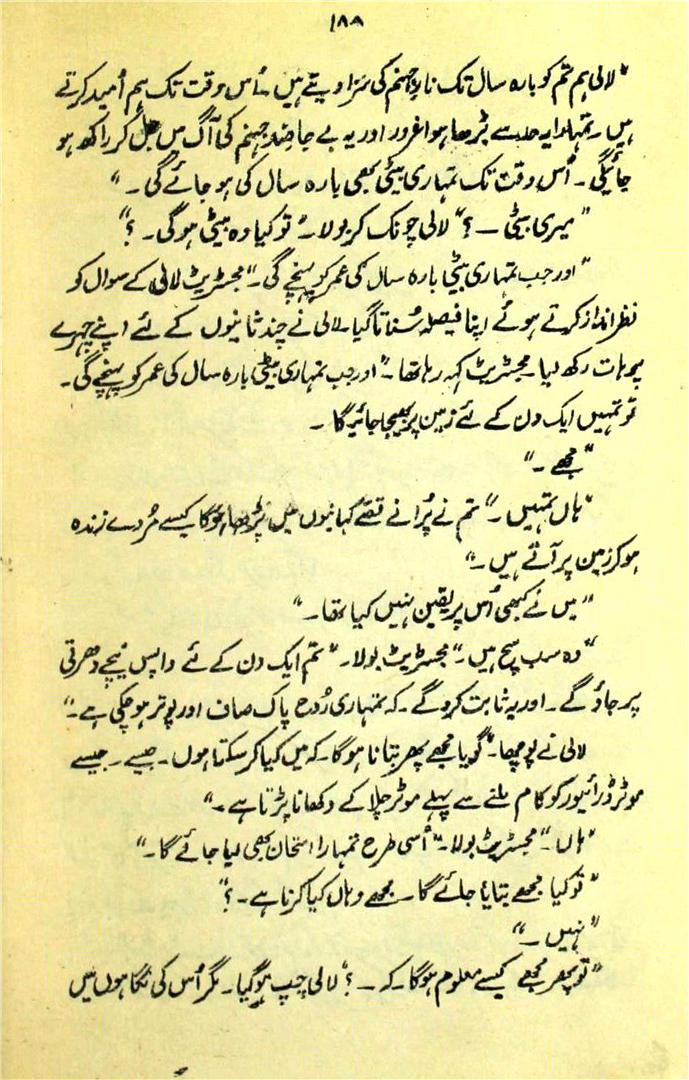 ۱۸۸
"لالی ہم تم کو بارہ سال تک نارِ جہنم کی سزا دیتے ہیں۔ اُس وقت تک ہم اُمید کرتے
ہیں۔ تمہارا یہ حد سے بڑھا ہوا غرور اور یہ بے جا ضد جہنم کی آگ میں جل کر راکھ ہو
جائیگی۔ اُس وقت تک تمہاری بیٹی بھی بارہ سال کی ہو جائے گی۔"
"میری بیٹی ۔ ؟" لالی چونک کر بولا۔ "تو کیا وہ بیٹی ہوگی۔ ؟"
"اور جب تمہاری بیٹی بارہ سال کی عمر کو پہنچے گی۔" مجسٹریٹ لالی کے سوال کو
نظر انداز کرتے ہوئے اپنا فیصلہ سُناتا گیا۔ لالی نے چند ثانیوں کے لئے اپنے چہرے
پر ہاتھ رکھ لیا۔ مجسٹریٹ کہہ رہا تھا۔ "اور جب تمہاری بیٹی بارہ سال کی عمر کو پہنچے گی۔
تو تمہیں ایک دن کے لئے زمین پر بھیجا جائیگا ۔
"مجھے ۔"
"ہاں تمہیں ۔" تم نے پُرانے قصے کہانیوں میں پڑھا ہوگا کیسے مُردے زندہ
ہو کر زمین پر آتے ہیں ۔"
"میں نے کبھی اُس پر یقین نہیں کیا تھا۔"
"وہ سب سچ ہیں ۔" مجسٹریٹ بولا۔ "تم ایک دن کے لئے واپس نیچے دھرتی
پر جاؤ گے ۔ اور یہ ثابت کرو گے ۔ کہ تمہاری رُوح پاک صاف اور پوتر ہو چکی ہے ۔"
لالی نے پوچھا۔ "گویا مجھے پھر بتانا ہوگا۔ کہ میں کیا کر سکتا ہوں ۔ جیسے ۔ جیسے
موٹر ڈرائیور کو کام ملنے سے پہلے موٹر چلا کے دکھانا پڑتا ہے ۔"
"ہاں ۔" مجسٹریٹ بولا۔ "اُسی طرح تمہارا امتحان بھی لیا جائے گا۔"
"تو کیا مجھے بتایا جائے گا ۔ مجھے وہاں کیا کرنا ہے ۔ ؟"
"نہیں ۔"
"تو پھر مجھے کیسے معلوم ہوگا۔ کہ ۔ ؟" لالی چپ ہو گیا ۔ مگر اُس کی نگاہوں میں